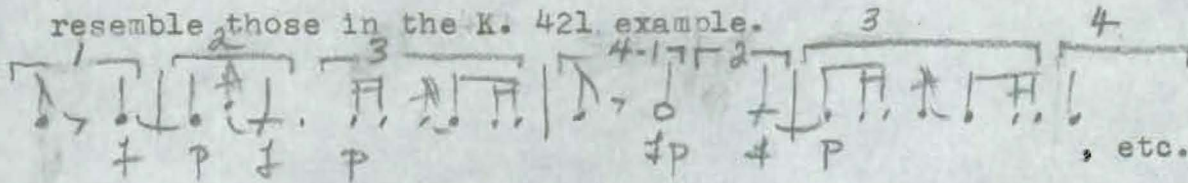 resemble those in the K. 421 example.
1 2 3 4-1 2 3 4
f p f p fp f p , etc.